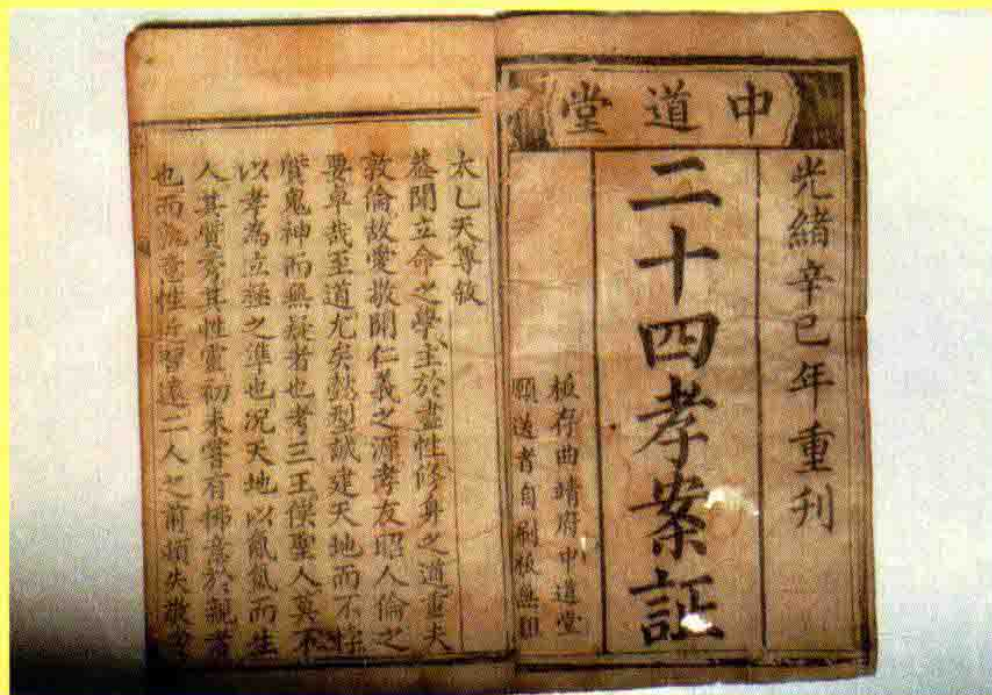 中道堂
光緒辛巳年重刊
二十四孝案証
板存曲靖府中道堂
願送者自刷板無租
太乙天尊敘
蓋聞立命之學主於盡性修身之道重夫
敦倫故愛敬開仁義之源孝友昭人倫之
要卓哉至道尤矣懿型誠建天地而不悖
質鬼神而無疑者也考三王俟聖人莫不
以孝為立極之準也況天地以氤氳而生
人其質秀其性靈初未嘗有拂意於親者
也而性近習遠二人之前頓失敬